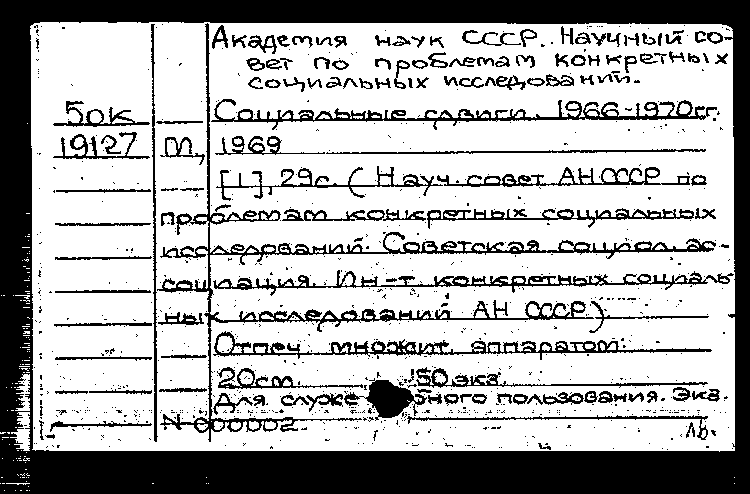 Академия наук СССР. Научный со-
вет по проблемам конкретных
социальных исследований.
50к Социальные сдвиги. 1966-1970гг.
19127 М., 1969
[1], 29с. (Науч. совет АН СССР по
проблемам конкретных социальных
исследований. Советская социол. ас-
социация. Ин-т конкретных социаль-
ных исследований АН СССР)
Отпеч. множит. аппаратом.
20см. 150 экз.
Для служебного пользования. Экз.
N 000002. 1б.